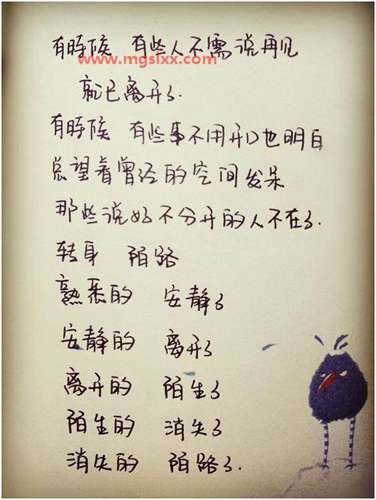 有時候 有些人不需说再见
www.mgslxx.com
就已离开了.
有時候 有些事不用开口也明白
总望着曾经的空间发呆
那些说好不分开的人不在了.
转身 陌路
熟悉的 安静了
安静的 离开了
离开的 陌生了
陌生的 消失了
消失的 陌路了.